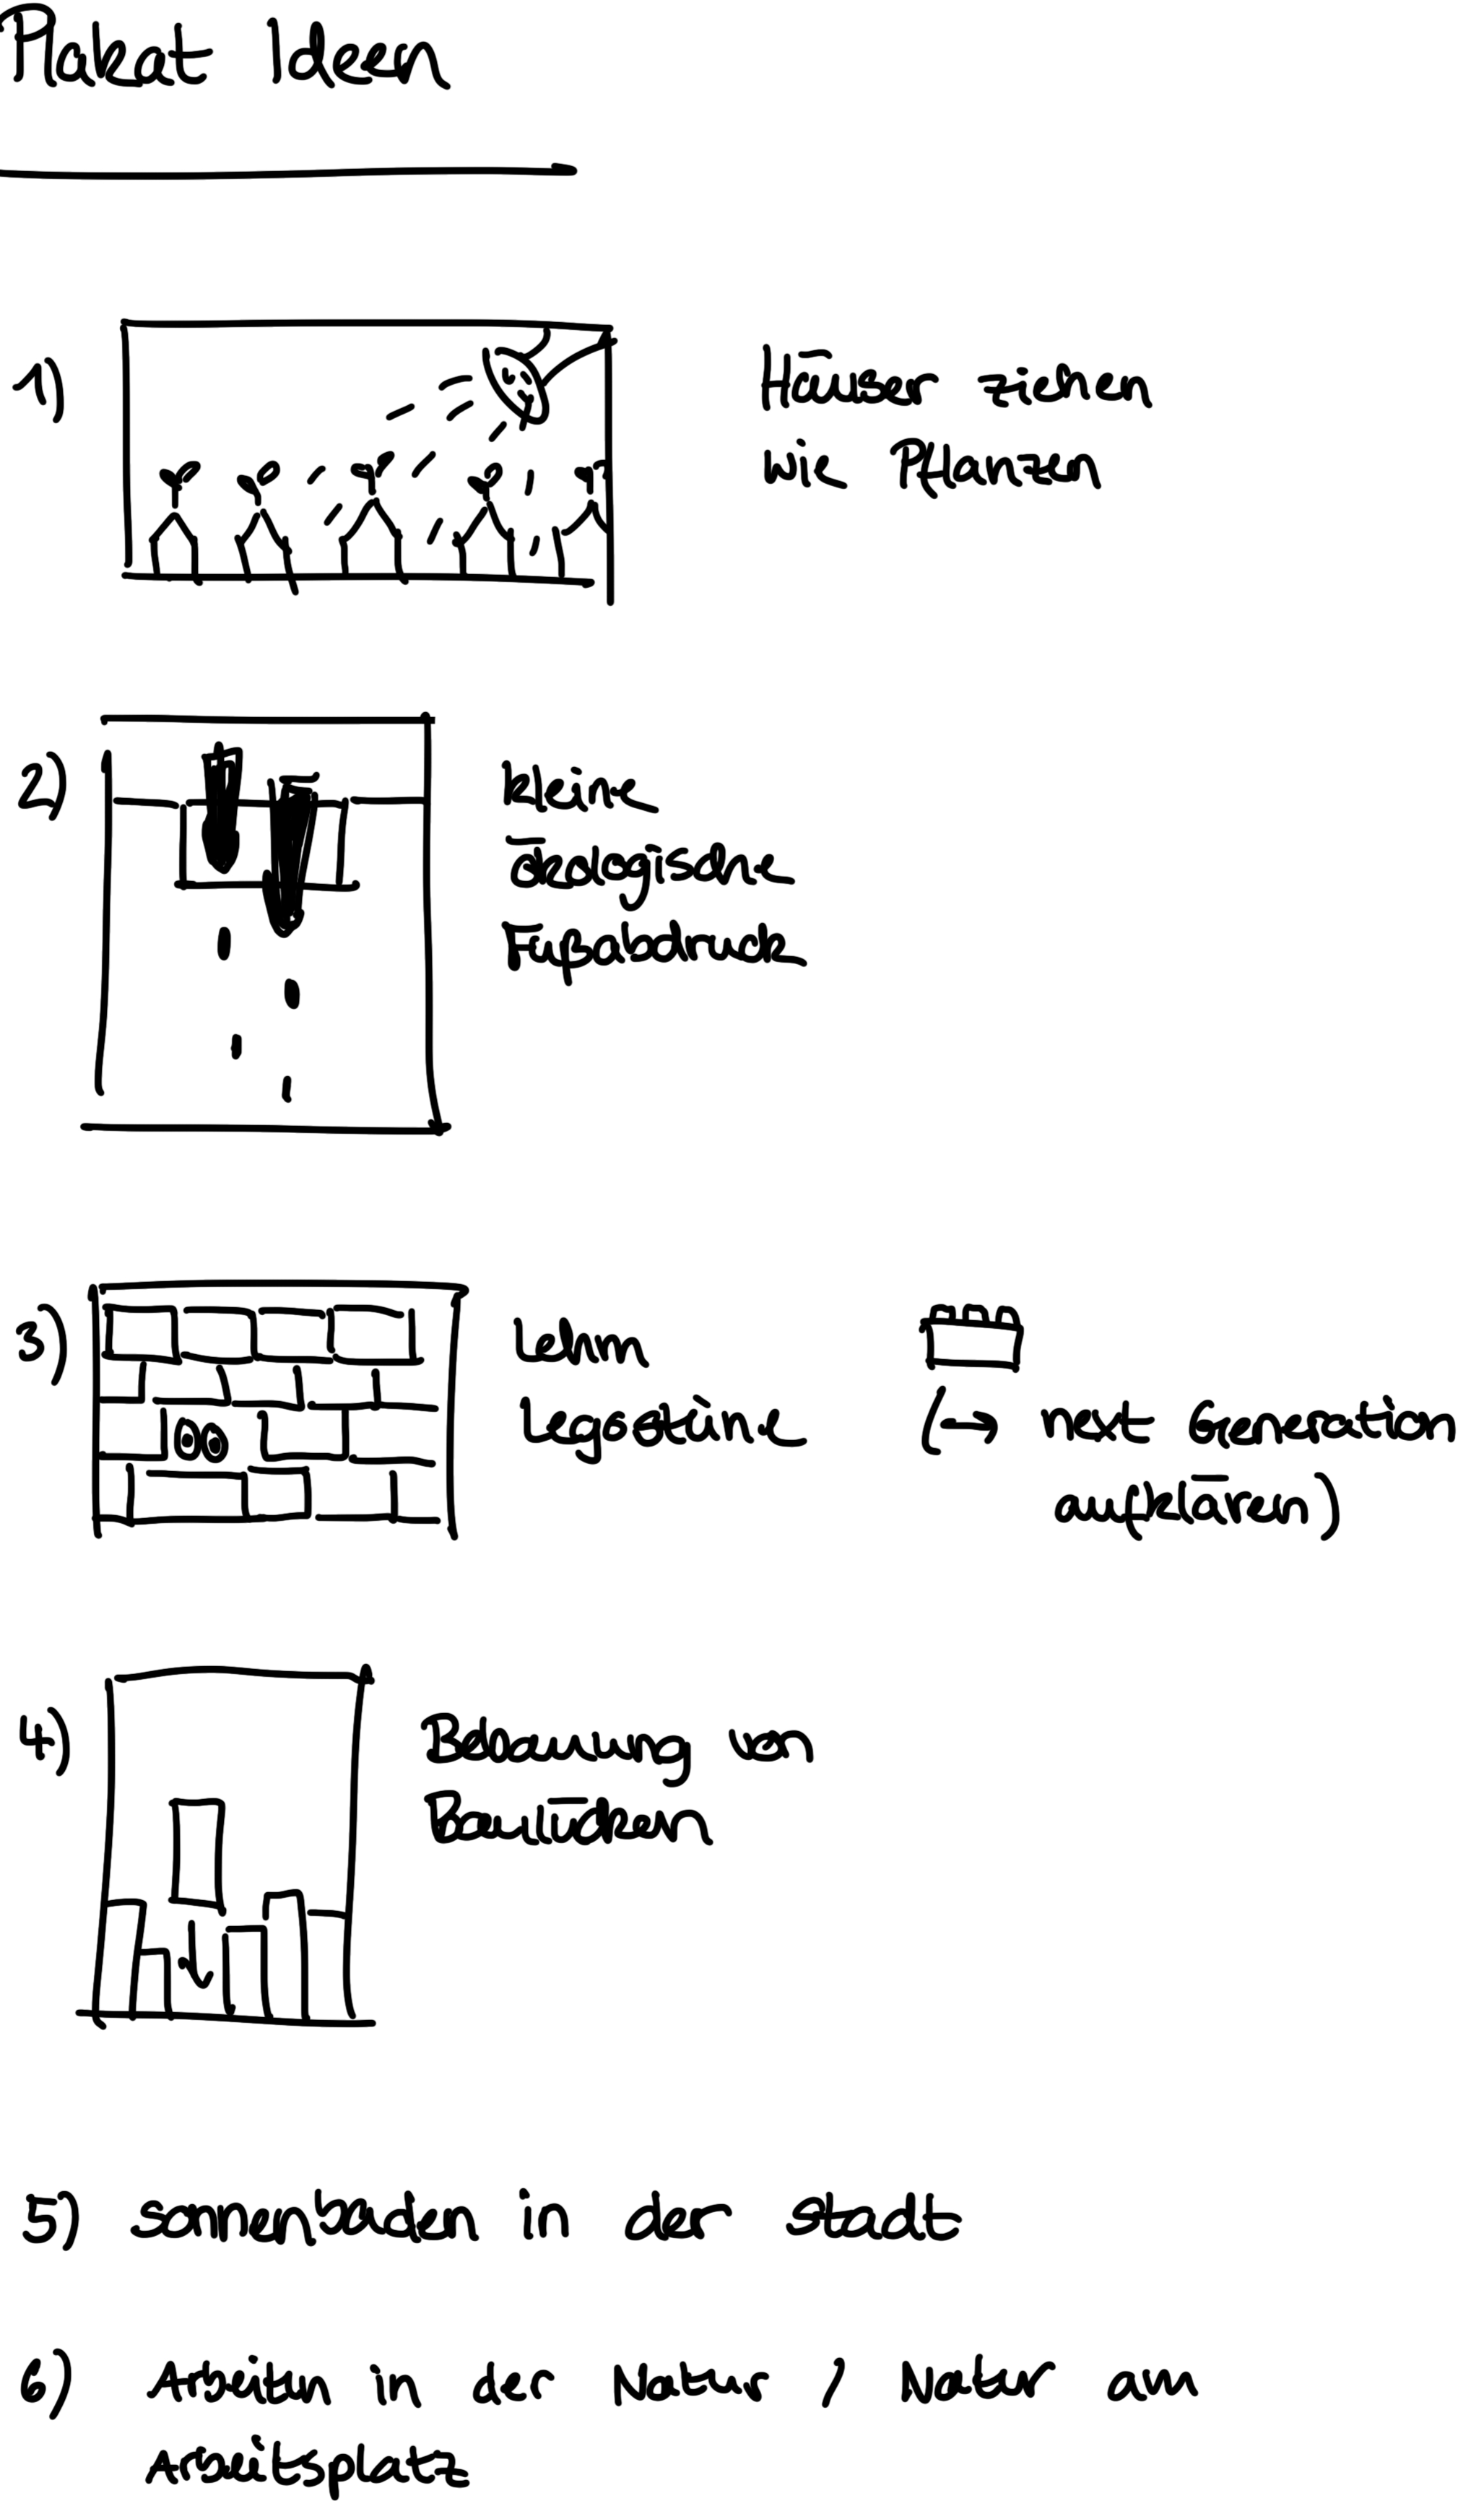 Plakat Ideen
1) Häuser ziehen
wie Pflanzen
2) keine
ökologischen
Fußabdruck
3) Lehm
Legosteine
(→ next generation
aufklären)
4) Bebauung von
Baulücken
5) sonnenbaden in der stadt
6) Arbeiten in der Natur / Natur am
Arbeitsplatz